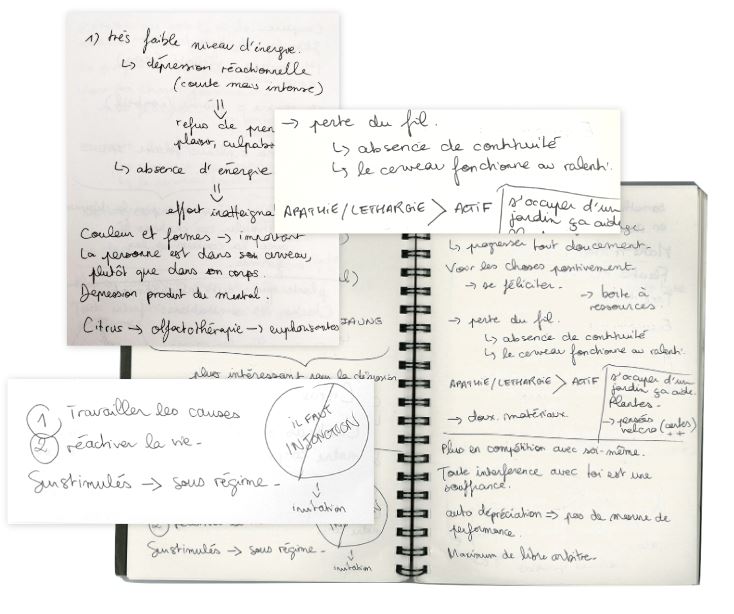 1) très faible niveau d'énergie.
↳ dépression réactionnelle
(courte mais intense)
⇓
refus de pren
plaisir, culpab
↳ absence d'énergie
⇓
effort inatteigna
Couleur et formes → important
La personne est dans son cerveau,
plutôt que dans son corps.
Dépression produit du mental.
Citrus → olfactothérapie → euphorisantes
→ perte du fil.
↳ absence de continuité
↳ le cerveau fonctionne au ralenti.
APATHIE/LETHARGIE > ACTIF
s'occuper d'un
jardin ça aide
JAUNE
plus intéressant pour la dépression
1 Travailler les causes
2 réactiver la vie -
Surstimulés → sous régime -
IL FAUT
INJONCTION
↓
invitation
Surstimulés → sous régime -
↓
invitation
↳ progresser tout doucement -
Voir les choses positivement -
→ se féliciter -
→ boîte à
ressources.
→ perte du fil.
↳ absence de continuité
↳ le cerveau fonctionne au ralenti.
APATHIE/LETHARGIE > ACTIF
s'occuper d'un
jardin ça aide.
Plantes -
→ pensées
velcro (cartes)
++
→ doux. matériaux.
Plus en compétition avec soi-même.
Toute interférence avec toi est une
souffrance.
auto dépréciation ⇒ pas de mesure de
performance.
Maximum de libre arbitre -